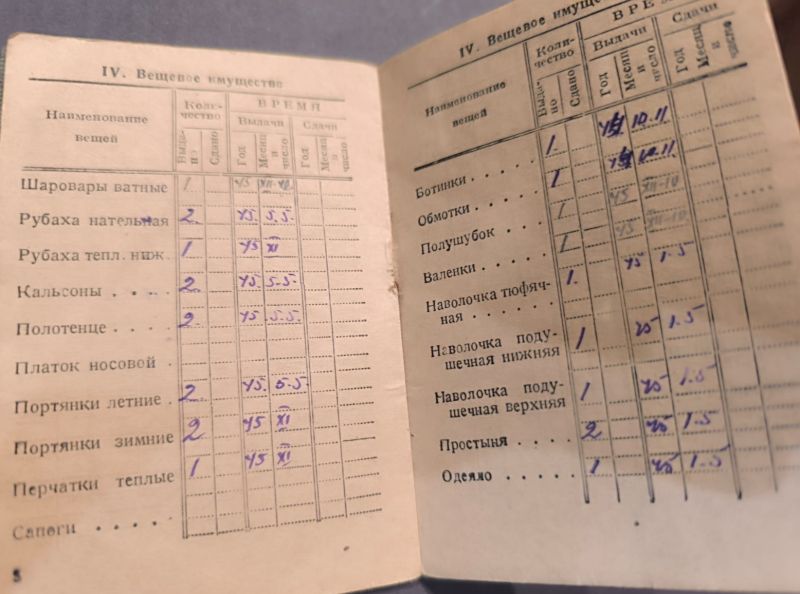 IV. Вещевое имущество
Наименование вещей
Коли-
чество
ВРЕМЯ
Выда-
но
Сдано
Выдачи
Сдачи
Год
Месяц
и
число
Год
Месяц
и
число
Шаровары ватные 1 45 XII-10
Рубаха нательная 2. 45. 5.5.
Рубаха тепл. ниж. 1 45 XI
Кальсоны . . . . 2. 45. 5.5.
Полотенце . . . . 2 45. 5.5.
Платок носовой .
Портянки летние . 2 45. 5.5
Портянки зимние 2 45 XI
Перчатки теплые 1 45 XI
Сапоги . . . . .
8
IV. Вещевое имущес
Наименование
вещей
Коли-
чество
ВРЕ
Выда-
но
Сдано
Выдачи
Сдачи
Год
Месяц
и
число
Год
Месяц
и
число
Ботинки . . . . . 1 10.11
Обмотки . . . . 1 10.11
Полушубок . . . 1 45 XII-10
Валенки . . . . . 1 45 XII-10
Наволочка тюфяч-
ная . . . . . . 1. 45 1.5
Наволочка поду-
шечная нижняя 1 45 1.5
Наволочка поду-
шечная верхняя 1 45 1.5
Простыня . . . . 2 45 1.5
Одеяло . . . . . 1 45 1.5